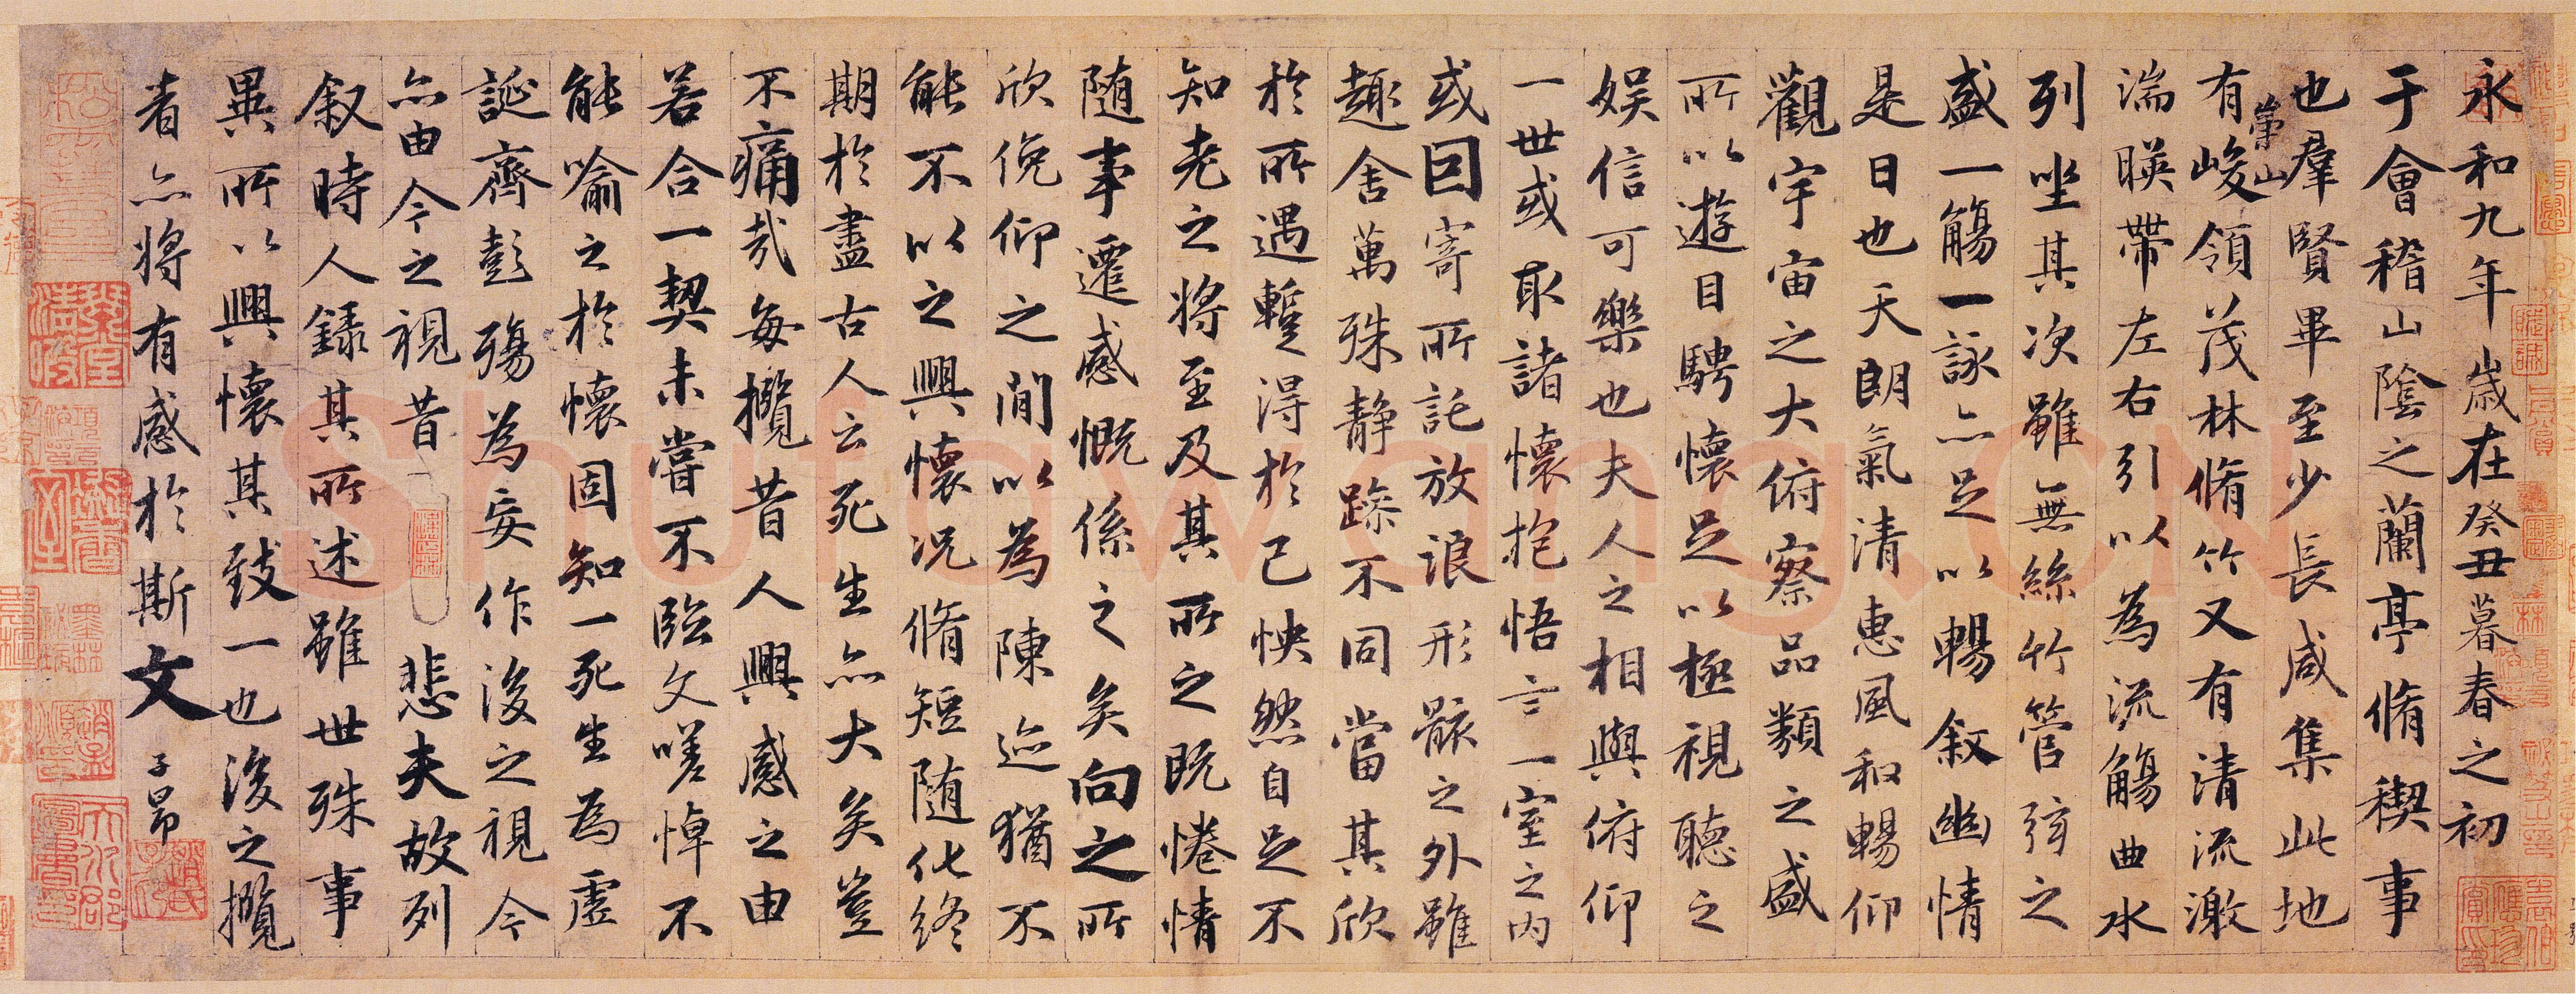 永和九年歲在癸丑暮春之初
于會稽山陰之蘭亭脩稧事
也羣賢畢至少長咸集此地
有崇山峻領茂林脩竹又有清流激
湍暎帶左右引以為流觴曲水
列坐其次雖無絲竹管弦之
盛一觴一詠亦足以暢叙幽情
是日也天朗氣清惠風和暢仰
觀宇宙之大俯察品類之盛
所以遊目騁懷足以極視聽之
娱信可樂也夫人之相與俯仰
一世或取諸懷抱悟言一室之內
或因寄所託放浪形骸之外雖
趣舍萬殊静躁不同當其欣
於所遇暫得於己怏然自足不
知老之將至及其所之既惓情
随事遷感慨係之矣向之所
欣俛仰之閒以為陳迹猶不
能不以之興懷況脩短随化終
期於盡古人云死生亦大矣豈
不痛哉每攬昔人興感之由
若合一契未嘗不臨文嗟悼不
能喻之於懷固知一死生為虛
誕齊彭殤為妄作後之視今
亦由今之視昔悲夫故列
叙時人錄其所述雖世殊事
異所以興懷其致一也後之攬
者亦將有感於斯文
子昂
Shufawang.CN